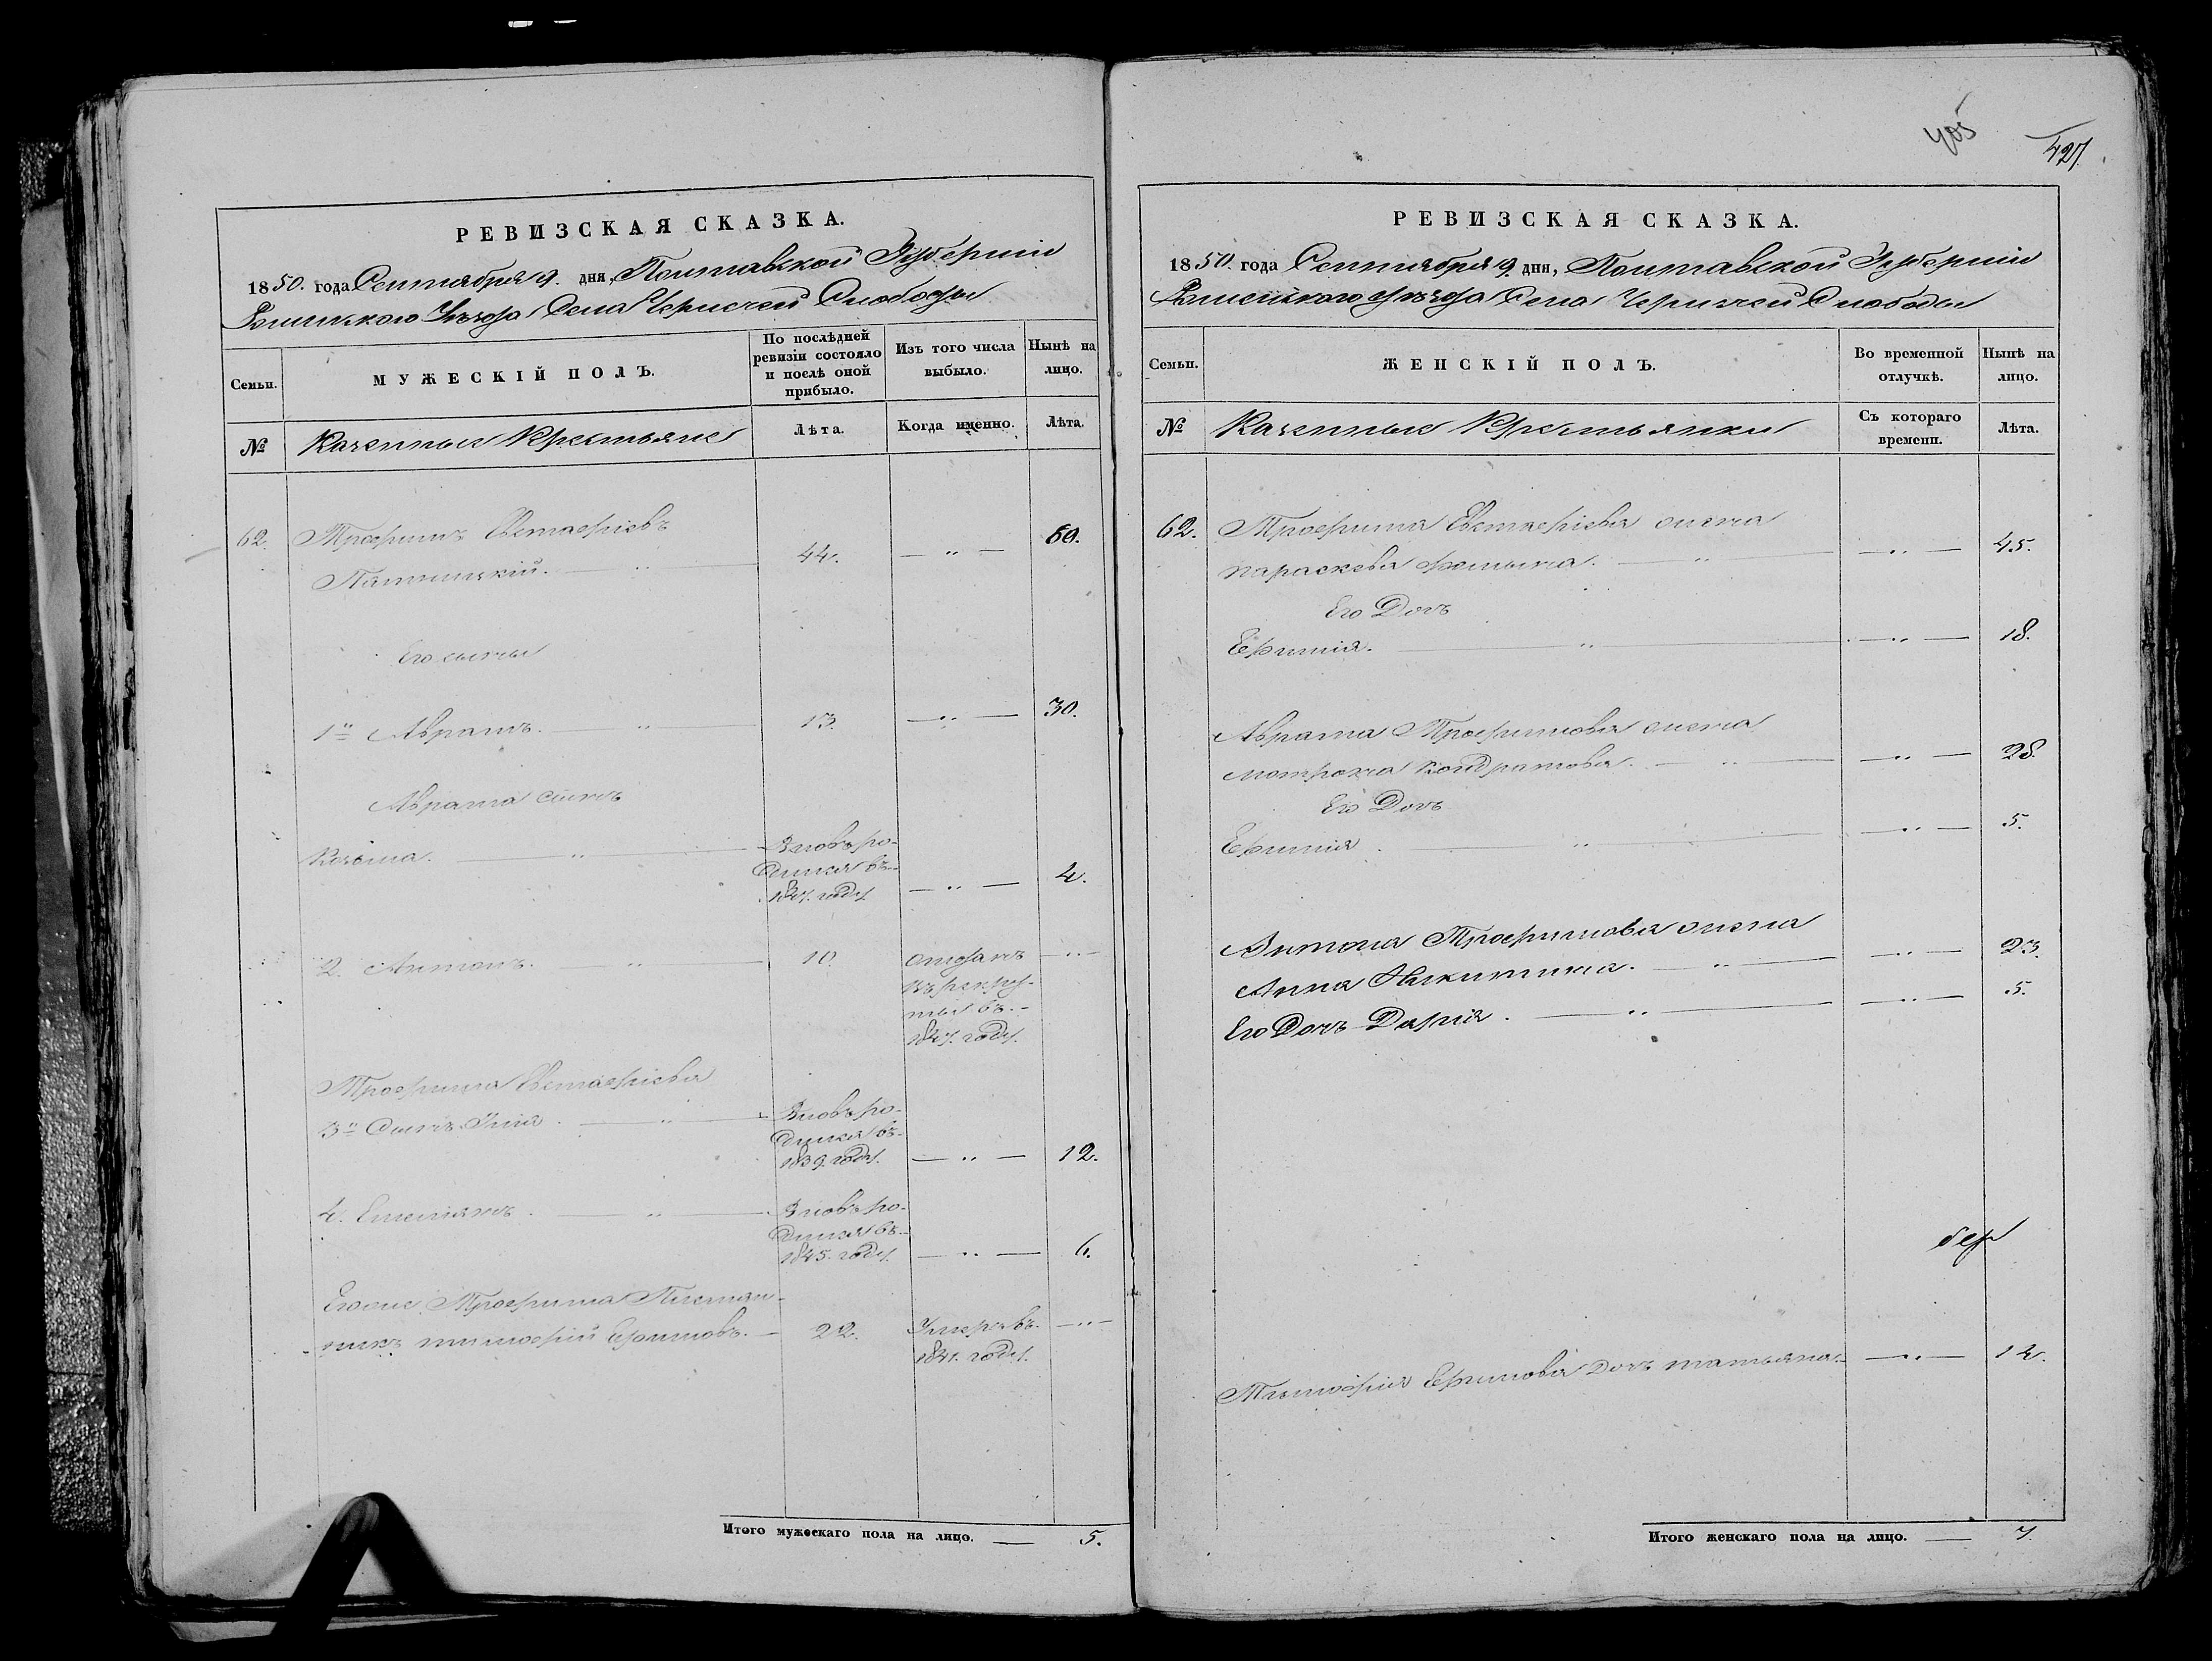 РЕВИЗСКАЯ СКАЗКА.
1850. года Сентября 9. дня, Полтавской Губерніи
Роменского Уѣзда Села Чернечей Слободы
Семьи.
МУЖЕСКІЙ ПОЛЪ.
По послѣдней ревизіи состояло и послѣ оной прибыло.
Изъ того числа выбыло.
Нынѣ на лицо.
№
Казенные Крестьяне
Лѣта.
Когда именно.
Лѣта.
62. Трофимъ Евстафіевъ
44. — " — 60.
Его сыны
1й Аврамъ. — " — 13. — " — 30.
Аврама сынъ
Козьма. — " — Вновь ро-
дился въ
1847. году — " — 4.
2. Антонъ. — " — 10. отданъ — " —
въ рекру-
ты въ
1847. году.
Трофима Евстафіева
3й Сынъ Илія. — " — Вновь ро-
дился въ
1839. году. — " — 12.
4. Емеліянъ. — " — Вновь ро-
дился въ
1845. году — " — 6.
Егоже Трофима Племян-
никъ тимофій Ефимовъ. — 22. Умеръ въ — " —
1841. году.
Итого мужескаго пола на лицо. — 5.
405
427.
РЕВИЗСКАЯ СКАЗКА.
1850. года Сентября 9. дня, Полтавской Губерніи
Роменского Уѣзда Села Чернечей Слободы
Семьи.
ЖЕНСКІЙ ПОЛЪ.
Во временной отлучкѣ.
Нынѣ на лицо.
№
Казенные Крестьянки
Съ котораго времени.
Лѣта.
62. Трофима Евстафіева жена
параскева фомина. — " — — " — 45.
Его Дочь
Ефимія. — " — — " — 18.
Аврама Трофимова жена
мотрона кондратова. — " — — " — 28.
Его Дочь
Ефимія. — " — — " — 5.
Антона Трофимова жена
Анна Никитина. — " — — " — 23.
Его Дочь Дарія. — " — — " — 5.
Тимофія Ефимова дочь татьяна. — " — 12.
Итого женскаго пола на лицо. — 7.